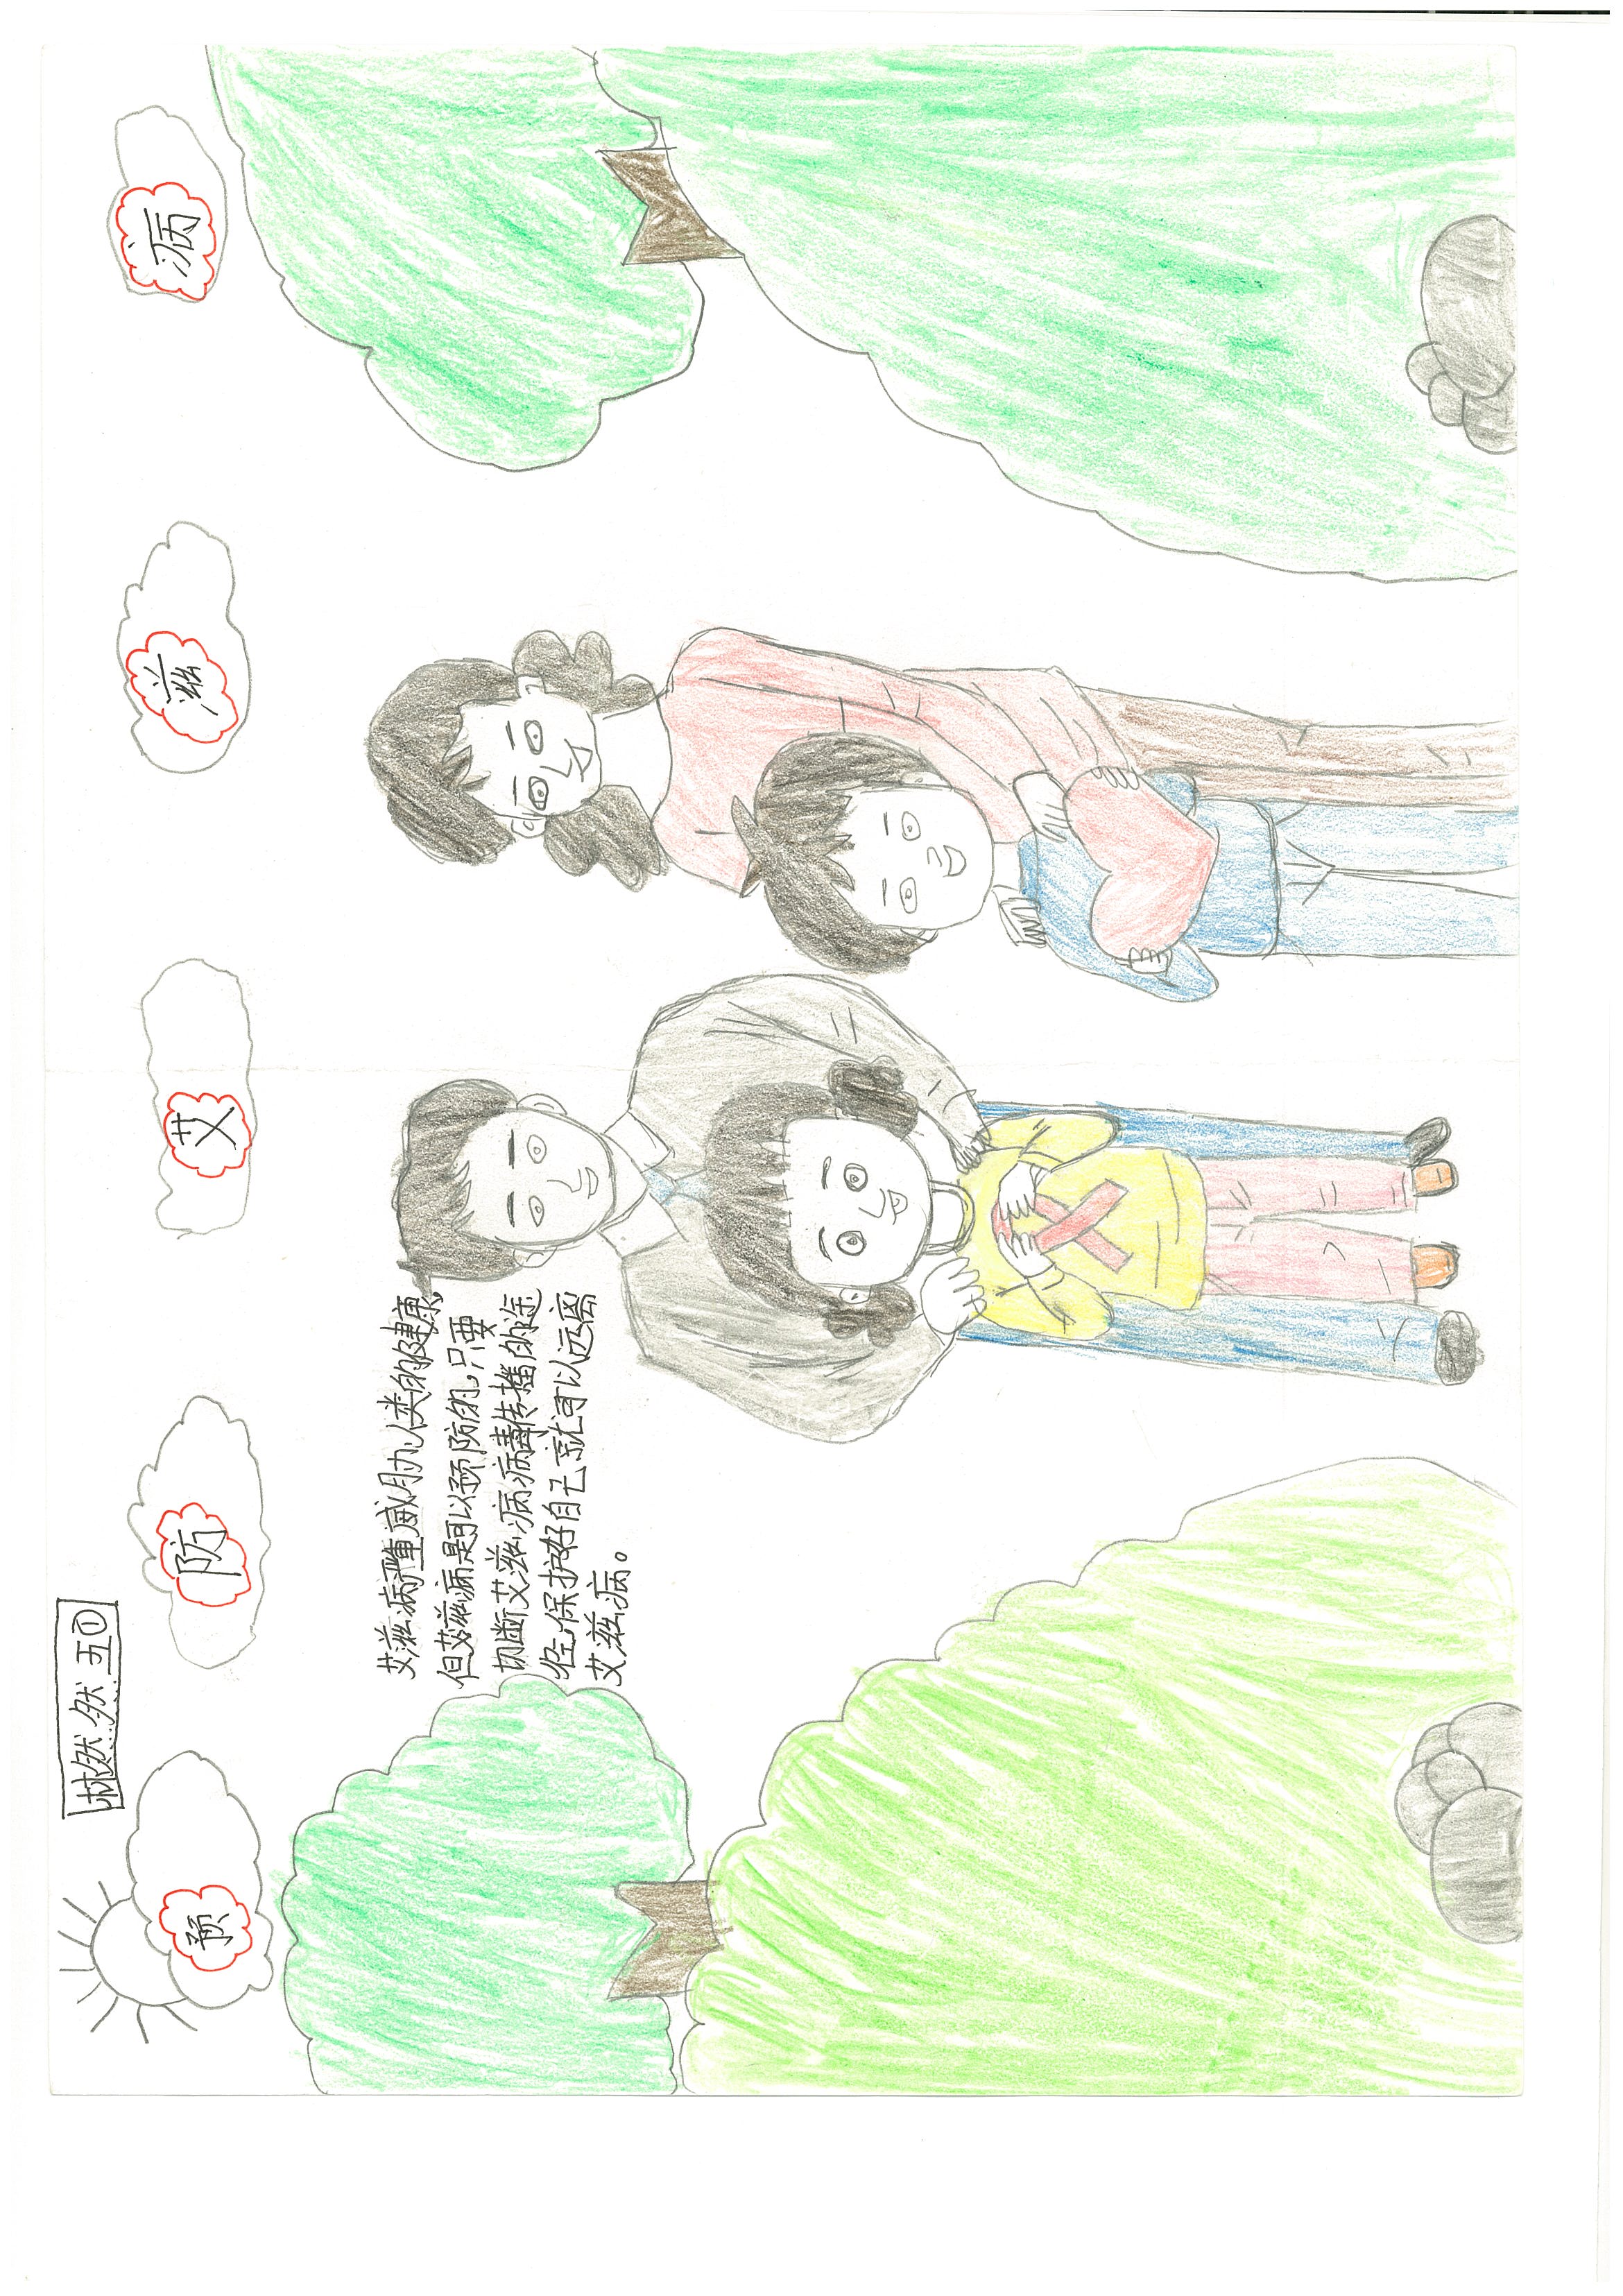 林然然 五①
预 防 艾 滋 病
艾滋病严重威胁人类的健康,
但艾滋病是可以预防的,只要
切断艾滋病病毒传播的途
径,保护好自己就可以远离
艾滋病。